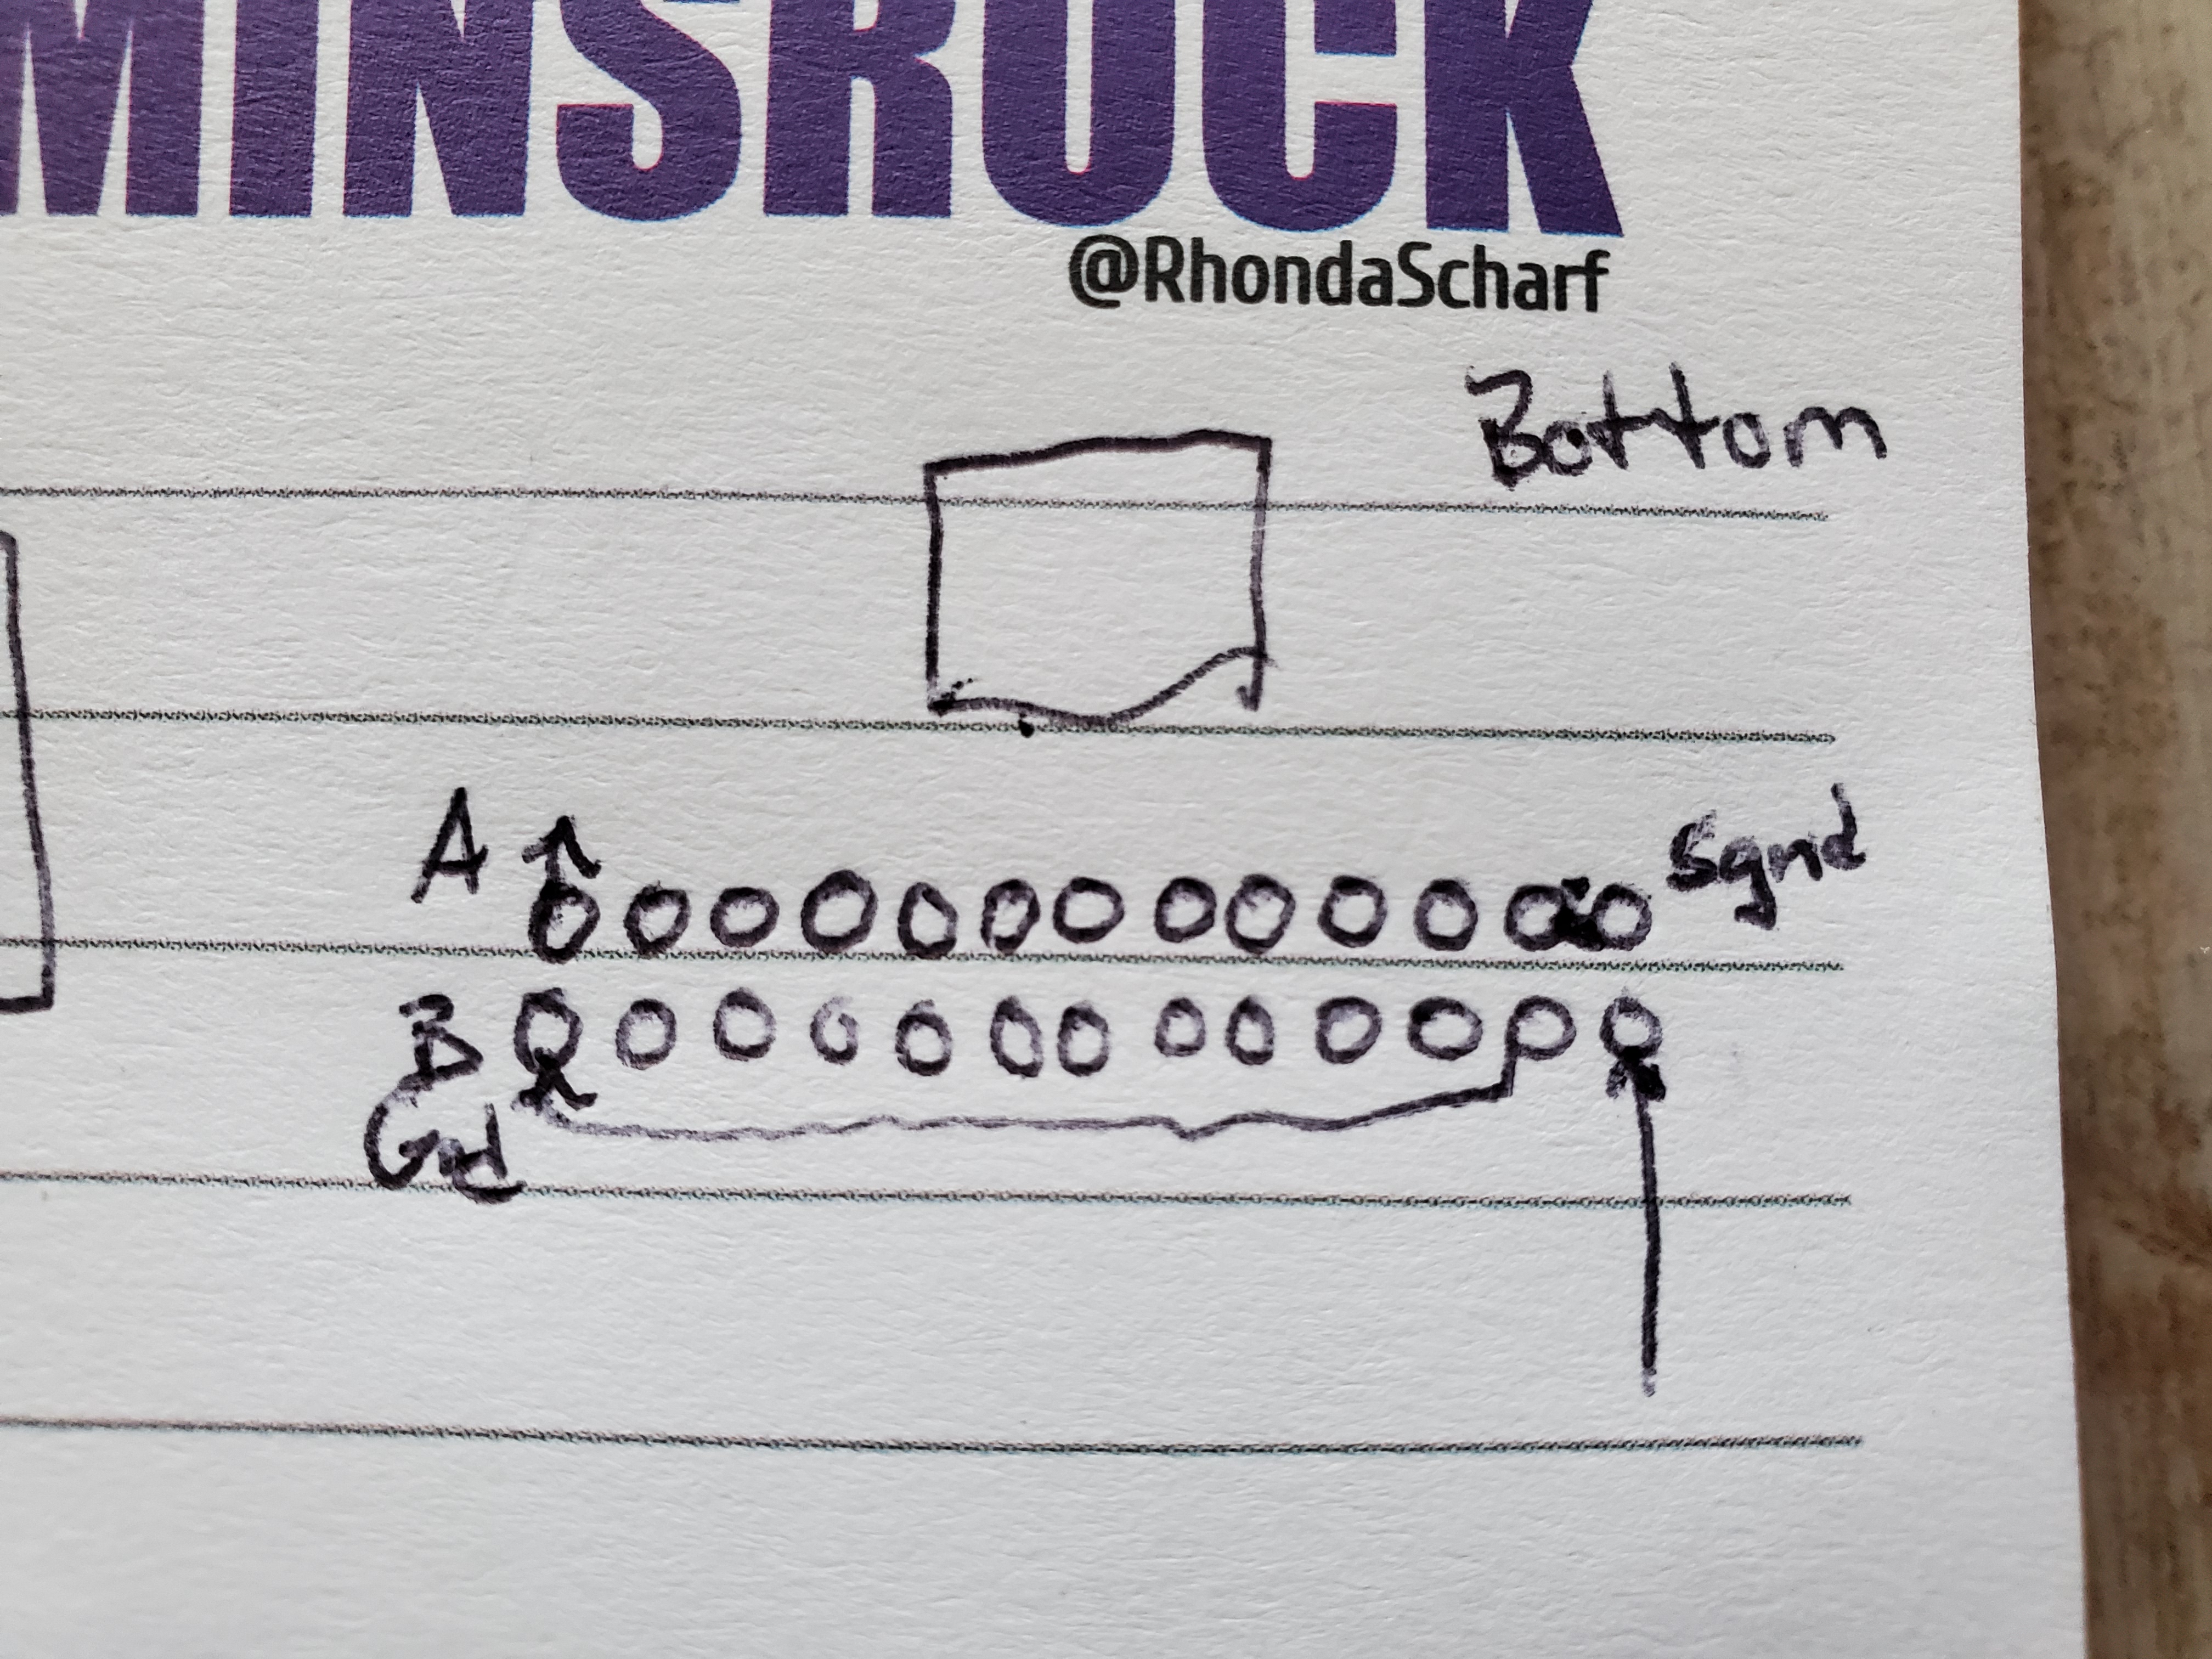 MINSROCK
@RhondaScharf
Bottom
A
Sgnd
B
Gd